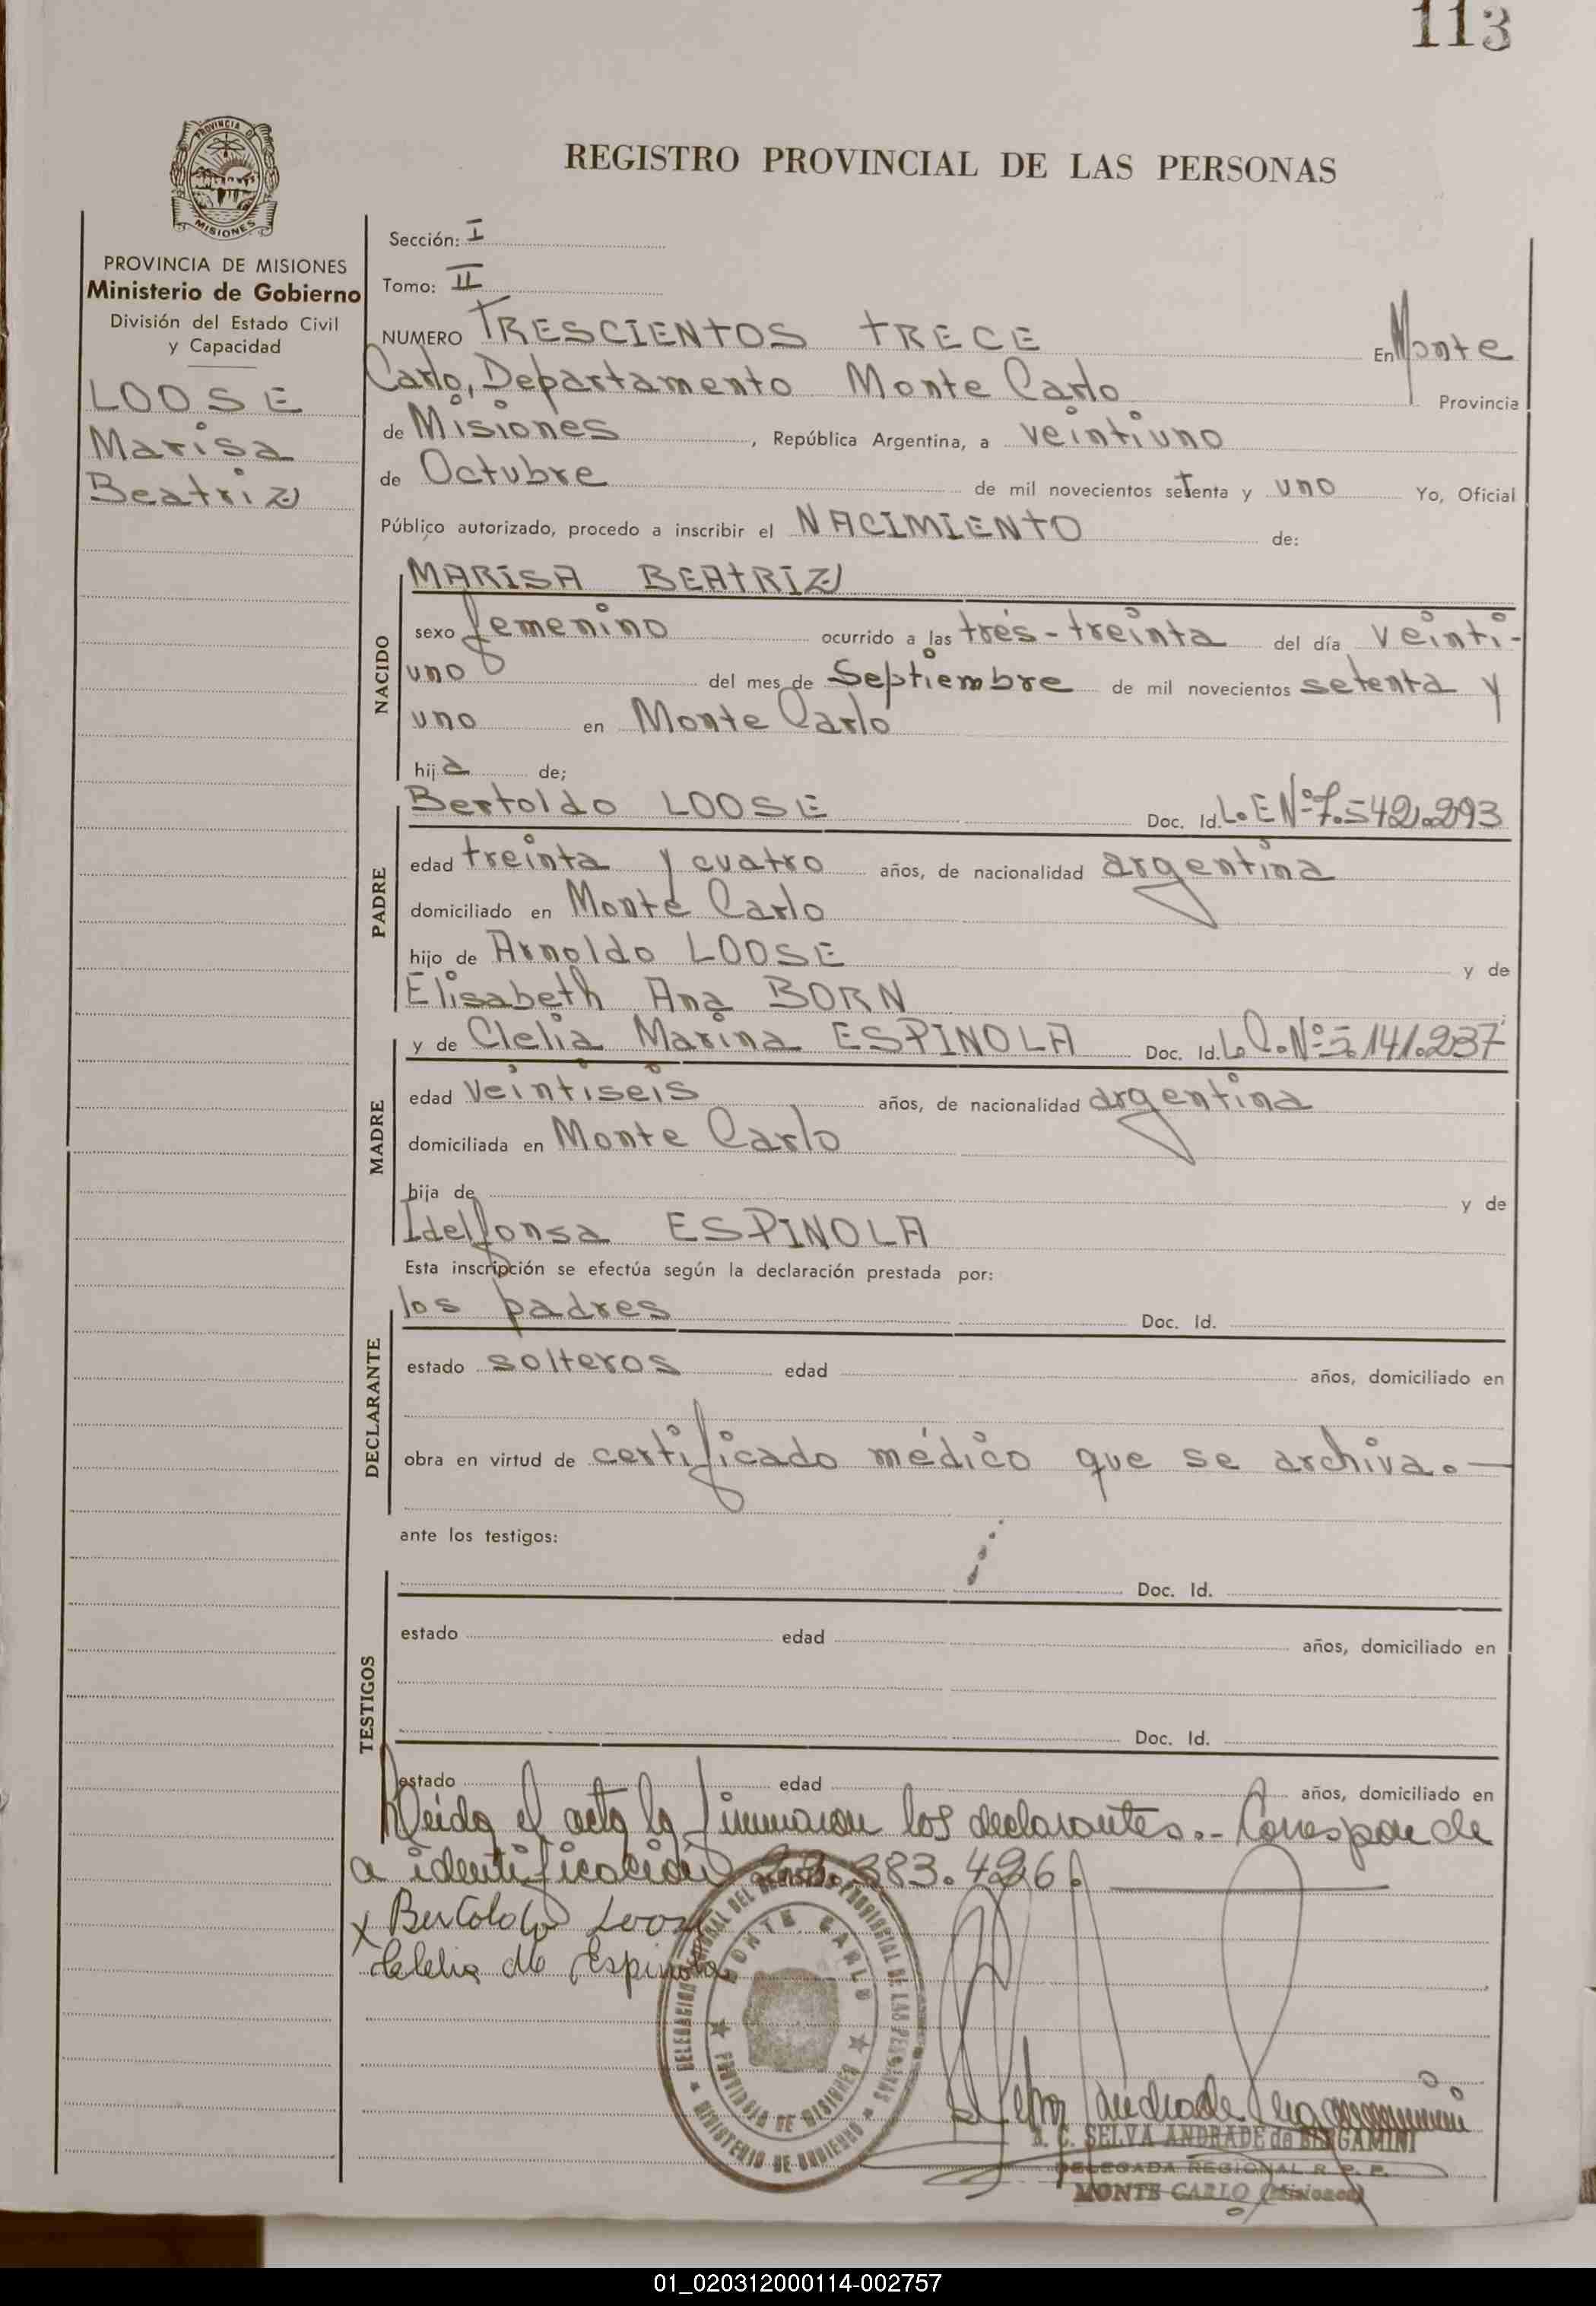 113
PROVINCIA DE
MISIONES
REGISTRO PROVINCIAL DE LAS PERSONAS
PROVINCIA DE MISIONES
Ministerio de Gobierno
División del Estado Civil
y Capacidad
LOOSE
Marisa
Beatriz
Sección: I
Tomo: II
NUMERO TRESCIENTOS TRECE En Monte
Carlo, Departamento Monte Carlo Provincia
de Misiones, República Argentina, a veintiuno
de Octubre de mil novecientos setenta y uno Yo, Oficial
Público autorizado, procedo a inscribir el NACIMIENTO de:
NACIDO
MARISA BEATRIZ
sexo femenino ocurrido a las trés-treinta del día veinti-
uno del mes de Septiembre de mil novecientos setenta y
uno en Monte Carlo
hija de;
PADRE
Bertoldo LOOSE Doc. Id. L.E Nº 7.542.293
edad treinta y cuatro años, de nacionalidad argentina
domiciliado en Monte Carlo
hijo de Arnoldo LOOSE y de
Elisabeth Ana BORN
MADRE
y de Clelia Marina ESPINOLA Doc. Id. L.C. Nº 5.141.237
edad veintiseis años, de nacionalidad argentina
domiciliada en Monte Carlo
hija de y de
Idelfonsa ESPINOLA
Esta inscripción se efectúa según la declaración prestada por:
DECLARANTE
los padres Doc. Id.
estado solteros edad años, domiciliado en
obra en virtud de certificado médico que se archiva.-
ante los testigos:
TESTIGOS
Doc. Id.
estado edad años, domiciliado en
Doc. Id.
estado edad años, domiciliado en
Leida el acta la firmaron los declarantes.- Corresponde
a identificación 22.383.426.
x Bertoldo Loose
Clelia de Espinola
DELEGACION REGIONAL DEL REGISTRO PROVINCIAL DE LAS PERSONAS
MONTE CARLO
PROVINCIA DE MISIONES
MINISTERIO DE GOBIERNO
Selva Andrade
C. SELVA ANDRADE de BERGAMINI
DELEGADA REGIONAL R. P. P.
MONTE CARLO (Misiones)
01_020312000114-002757